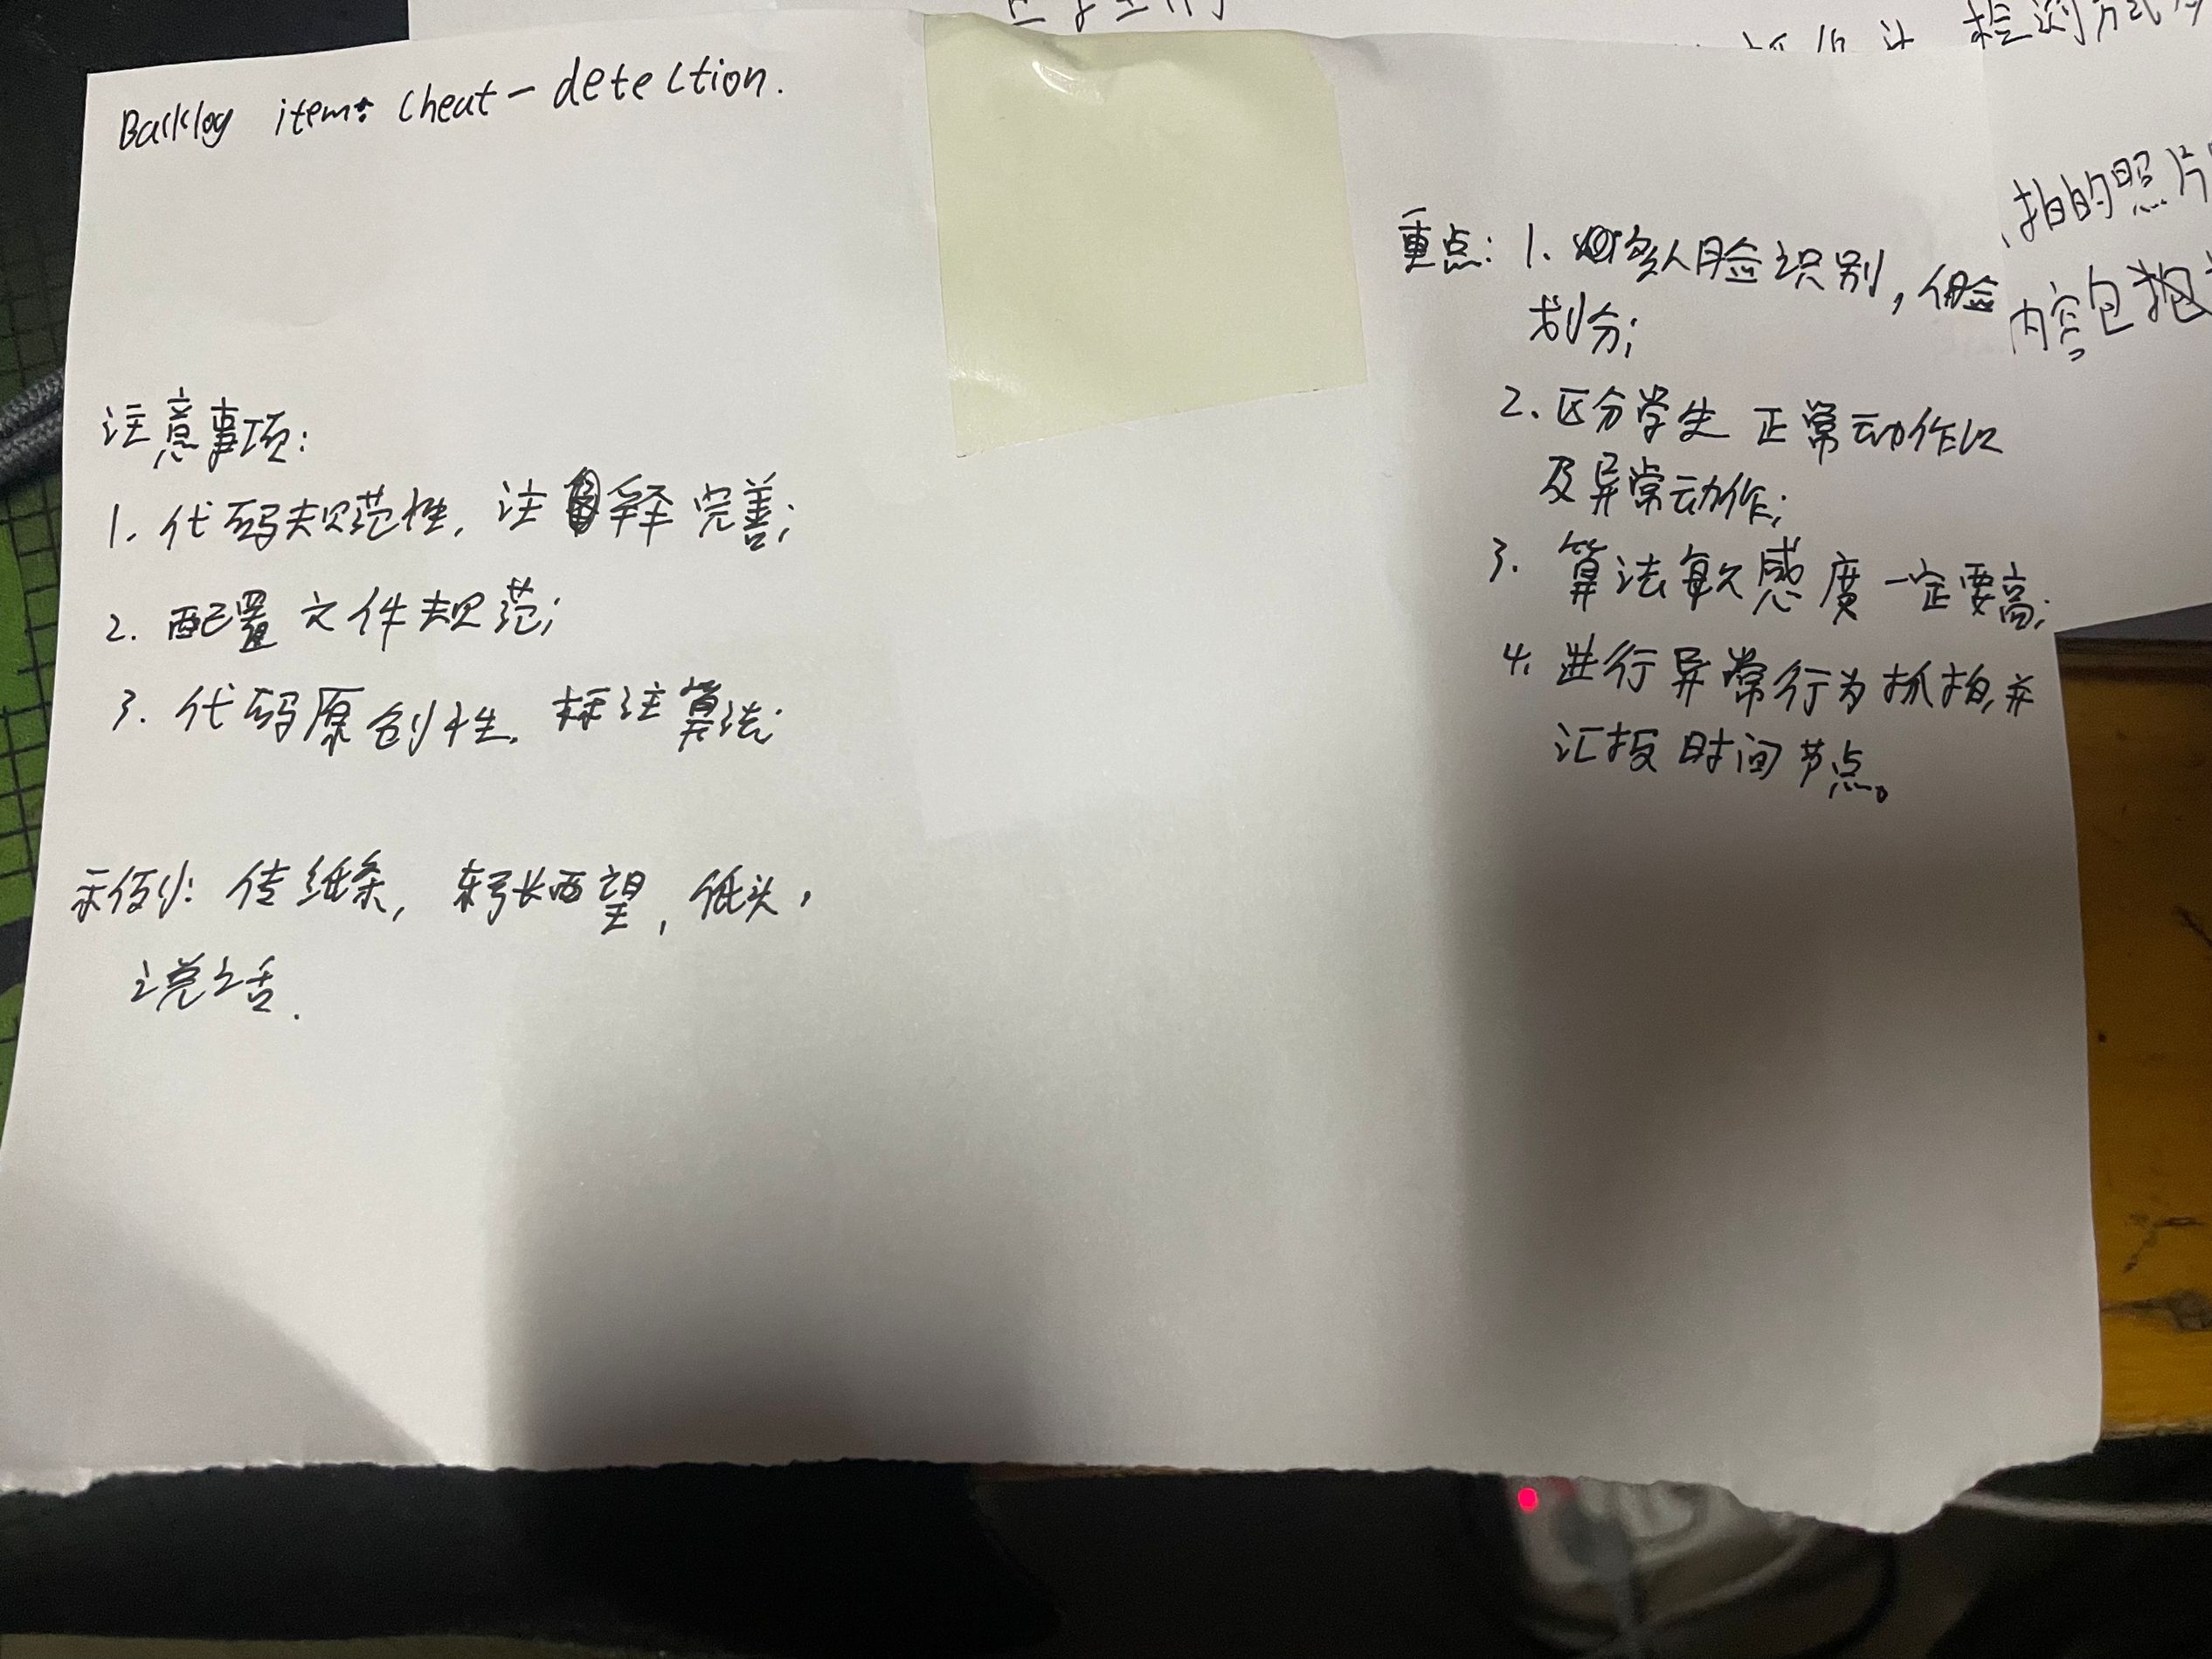 Backlog item: Cheat-detection.
注意事项:
1. 代码规范性, 注释完善;
2. 配置文件规范;
3. 代码原创性, 标注算法;
示例: 传纸条, 东张西望, 低头,
说话.
重点: 1. 多人脸识别,
划分;
2. 区分学生正常动作以
及异常动作;
3. 算法敏感度一定要高;
4. 进行异常行为抓拍, 并
汇报时间节点。
检测方式
拍的照片
内容包